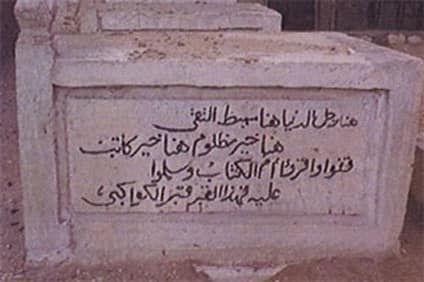 هنا رجل الدنيا هنا مهبط التقى
هنا خير مظلوم هنا خير كاتب
قفوا واقرؤا أم الكتاب وسلموا
عليه فهذا القبر قبر الكواكبي